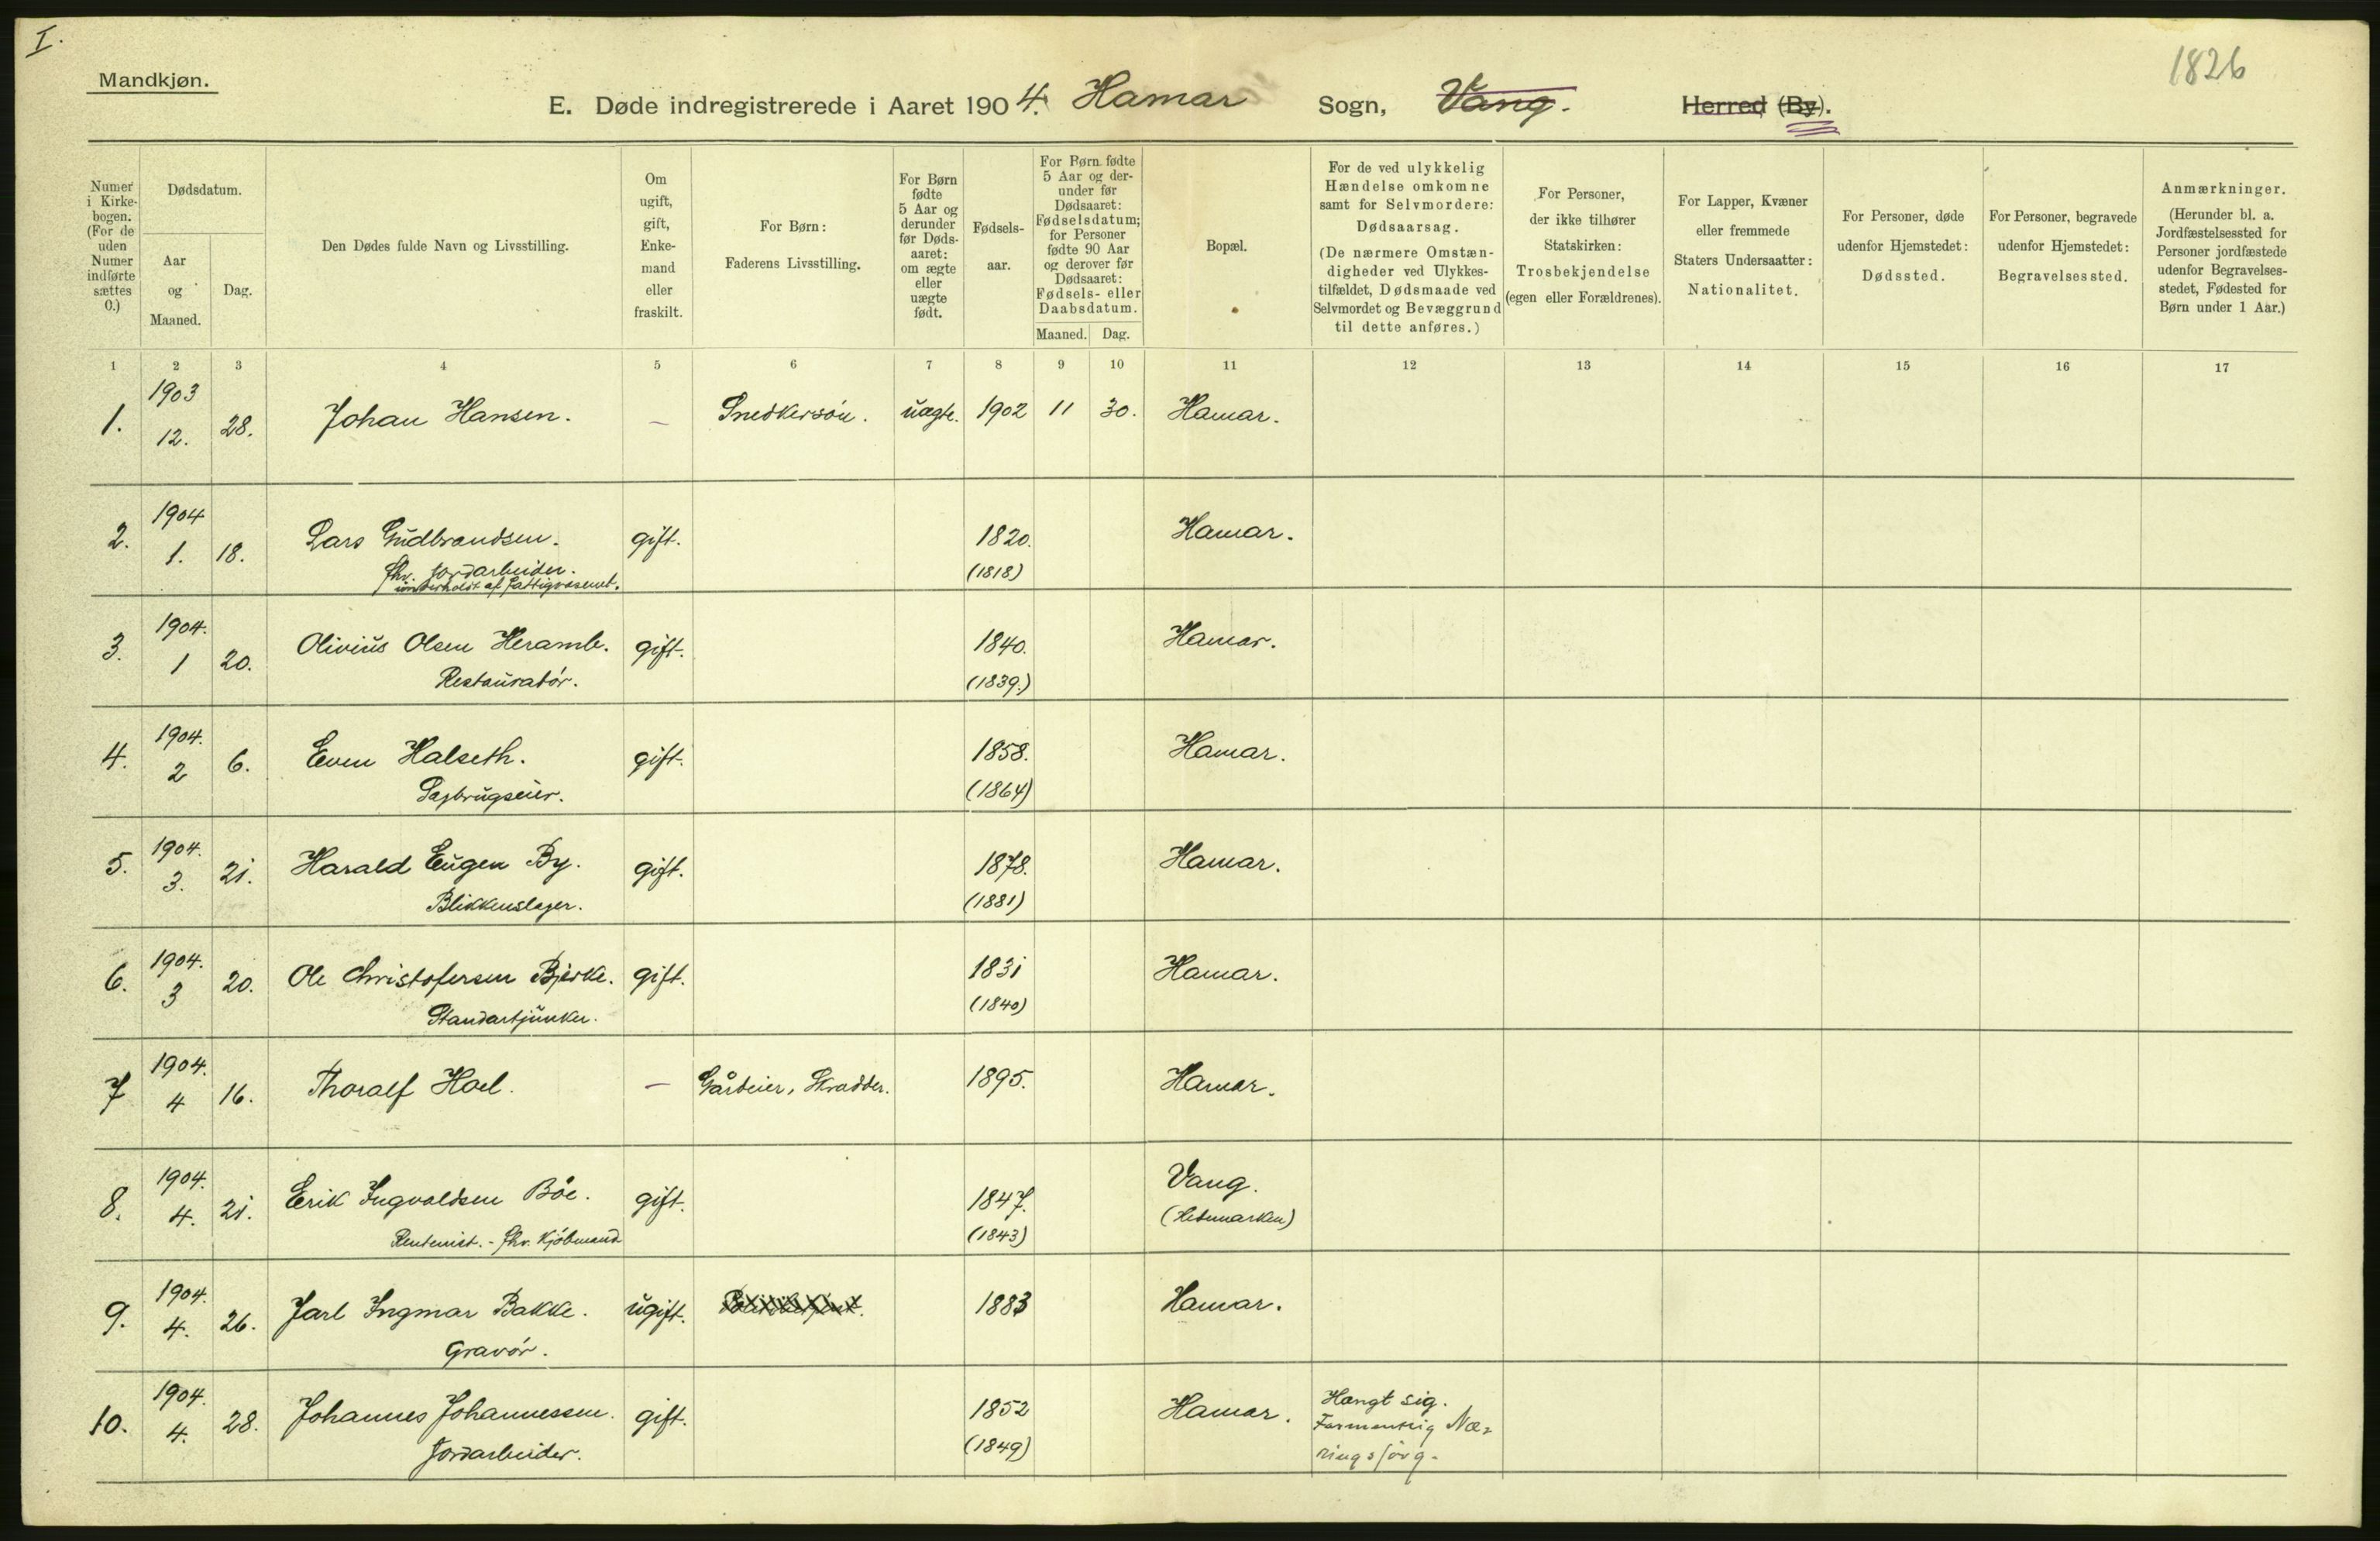 I.
1826
Mandkjøn.
E. Døde indregistrerede i Aaret 1904. Hamar Sogn, Vang. Herred (By).
Numer i Kirke-bogen. (For de uden Numer indførte sættes 0.)
Dødsdatum.
Aar og Maaned.
Dag.
Den Dødes fulde Navn og Livsstilling.
Om ugift, gift, Enke-mand eller fraskilt.
For Børn: Faderens Livsstilling.
For Børn fødte 5 Aar og derunder før Døds-aaret: om ægte eller uægte født.
Fødsels-aar.
For Børn fødte 5 Aar og der-under før Dødsaaret: Fødselsdatum; for Personer fødte 90 Aar og derover før Dødsaaret: Fødsels- eller Daabsdatum.
Maaned. Dag.
Bopæl.
For de ved ulykkelig Hændelse omkomne samt for Selvmordere: Dødsaarsag. (De nærmere Omstæn-digheder ved Ulykkes-tilfældet, Dødsmaade ved Selvmordet og Bevæggrund til dette anføres.)
For Personer, der ikke tilhører Statskirken: Trosbekjendelse (egen eller Forældrenes).
For Lapper, Kvæner eller fremmede Staters Undersaatter: Nationalitet.
For Personer, døde udenfor Hjemstedet: Dødssted.
For Personer, begravede udenfor Hjemstedet: Begravelsessted.
Anmærkninger. (Herunder bl. a. Jordfæstelsessted for Personer jordfæstede udenfor Begravelses-stedet, Fødested for Børn under 1 Aar.)
1 2 3 4 5 6 7 8 9 10 11 12 13 14 15 16 17
1903
1. 12. 28. Johan Hansen. — Snedkersøn. uægte. 1902 11 30. Hamar.
1904
2. 1. 18. Lars Gudbrandsen. gift. 1820. Hamar.
fhv. Jordarbeider. (1818)
underholdt af Fattigvæsenet.
1904.
3. 1 20. Olivius Olsen Heramb. gift. 1840. Hamar.
Restauratør. (1839.)
1904.
4. 2 6. Even Halseth. gift. 1858. Hamar.
Sagbrugseier. (1864)
1904.
5. 3. 21. Harald Eugen By. gift. 1878. Hamar.
Blikkenslager. (1881)
1904.
6. 3 20. Ole Christofersen Bjerke. gift. 1831 Hamar.
Standartjunker. (1840)
1904.
7 4 16. Thoralf Hoel. — Gårdeier, Skrædder. 1895. Hamar.
1904.
8. 4. 21. Erik Ingvoldsen Bøe. gift. 1847. Vang.
Rentenist. - fhv. Kjøbmand (1843) (Hedemarken)
1904.
9. 4. 26. Jarl Ingmar Bakke. ugift. 1883 Hamar.
Gravør.
1904.
10. 4. 28. Johannes Johannessen. gift. 1852 Hamar. Hængt sig.
Jordarbeider. (1849) Formentlig Næ-
ringssorg.